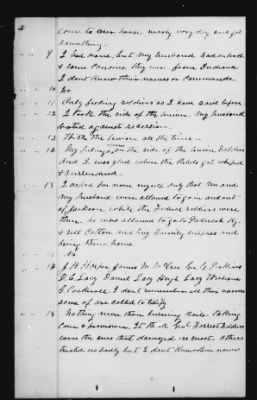 Come to our house nearly every day and get
something.
9 I had none, but my husband had an uncle
& some Cousins they were from Indiana
I dont know their names or Commands.
10 No
11 Only feeding soldiers as I have said before
12 I took the side of the Union. My husband
voted against secession.
13 With the Union all the time
14 My feelings on the side of the Union Soldiers
And I was glad when the Rebels got whiped
& surrendered.
15 I asked for none myself only that He and
my husband were allowed to go in and out
of Jackson while the Federal soldiers were
there he was allowed to go to Paducah Ky
& sell Cotton and buy family supplies and
bring them home
16 No
17 J. H. Harper James W. McCree Geo G. Perkins
D. G. Lacy Daniel Lacy Hugh Lacy William
G. Cockrill I dont remember all their names
some of are called to testify
18 Nothing more than burning Rails. Taking
Corn & provisions. It Genl Forrest Soldiers
were the ones that damaged us most. Others
treated us badly but I dont know their names